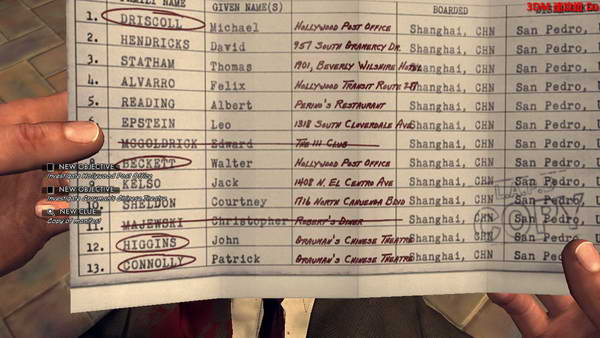 FAMILY NAME GIVEN NAME(S) BOARDED
1. DRISCOLL Michael HOLLYWOOD POST OFFICE Shanghai, CHN San Pedro, U
2. HENDRICKS David 957 SOUTH GRAMERCY DR. Shanghai, CHN San Pedro, U
3. STATHAM Thomas 1901, BEVERLY WILSHIRE HOTEL Shanghai, CHN San Pedro, U
4. ALVARRO Felix HOLLYWOOD TRANSIT ROUTE Shanghai, CHN San Pedro, U
5. READING Albert PERINO'S RESTAURANT Shanghai, CHN San Pedro,
6. EPSTEIN Leo 1318 SOUTH CLOVERDALE AVE Shanghai, CHN San Pedro,
MCGOLDRICK Edward THE 111 CLUB Shanghai, CHN San Pedro,
8. BECKETT Walter HOLLYWOOD POST OFFICE Shanghai, CHN San Pedro,
9. KELSO Jack 1408 N. EL CENTRO AVE Shanghai, CHN San Pedro,
10. SHELDON Courtney 1716 NORTH CAHUENGA BLVD Shanghai, CHN San Pedro,
11. MAJEWSKI Christopher ROBERT'S DINER Shanghai, CHN San Pedro,
12. HIGGINS John GRAUMAN'S CHINESE THEATRE Shanghai, CHN San Pedro,
13. CONNOLLY Patrick GRAUMAN'S CHINESE THEATRE Shanghai, CHN San
NEW OBJECTIVE
Investigate Hollywood Post Office
NEW OBJECTIVE
Investigate Grauman's Chinese Theatre
NEW CLUE
Copy of manifest
COPY
3DM